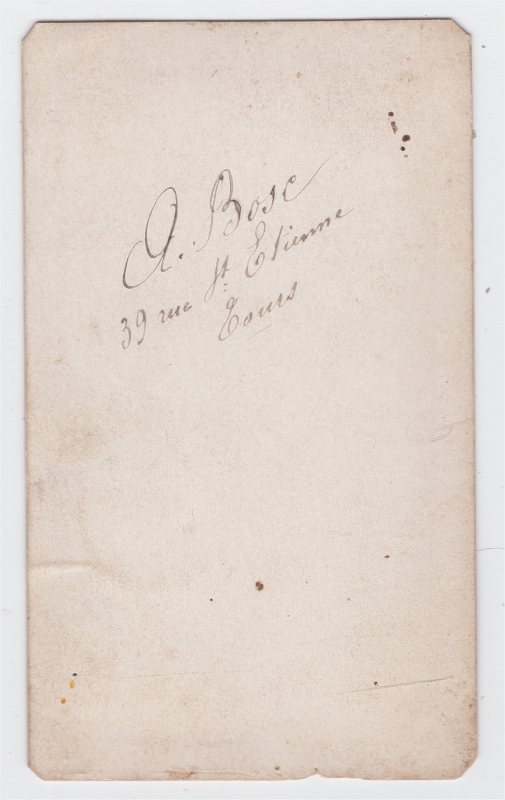 A. Bosc
39 rue St Etienne
Tours